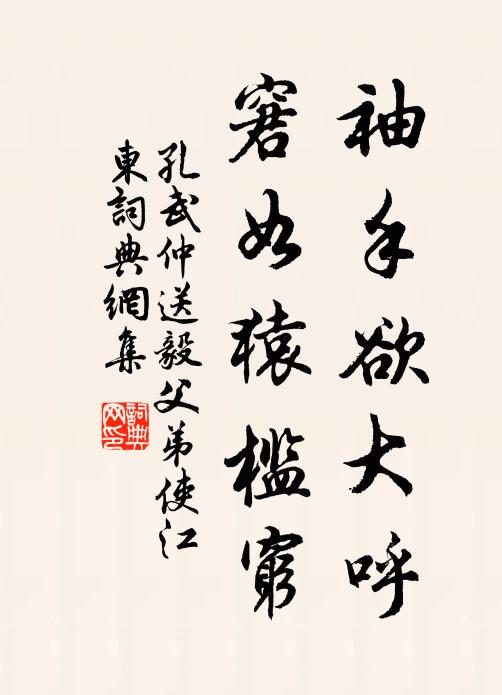 袖手欲大呼
窘如猿槛窮
孔武仲送毅父弟使江
東詞典網集
詞典
网印